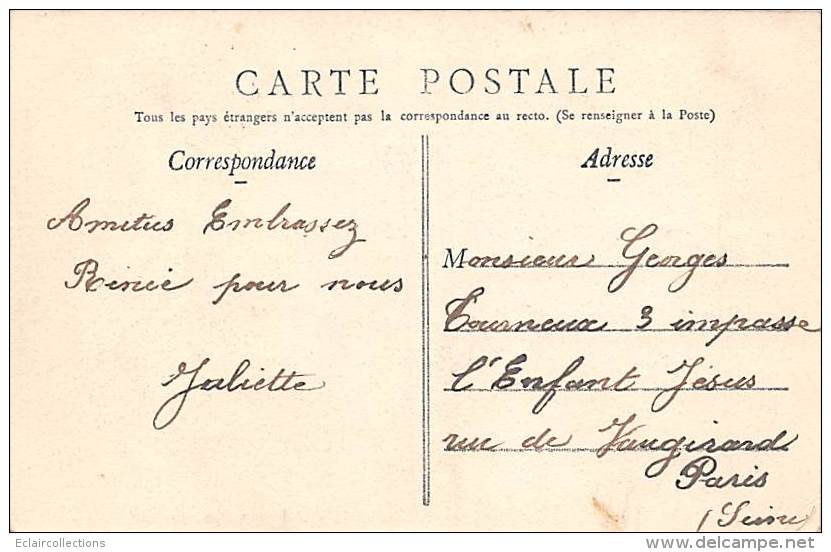 CARTE POSTALE
Tous les pays étrangers n'acceptent pas la correspondance au recto. (Se renseigner à la Poste)
Correspondance
Amities Embrassez
Renée pour nous
Juliette
Adresse
Monsieur Georges
Tourneux 3 impasse
l'Enfant Jésus
rue de Vaugirard
Paris
(Seine)
Eclaircollections
delcampe.net